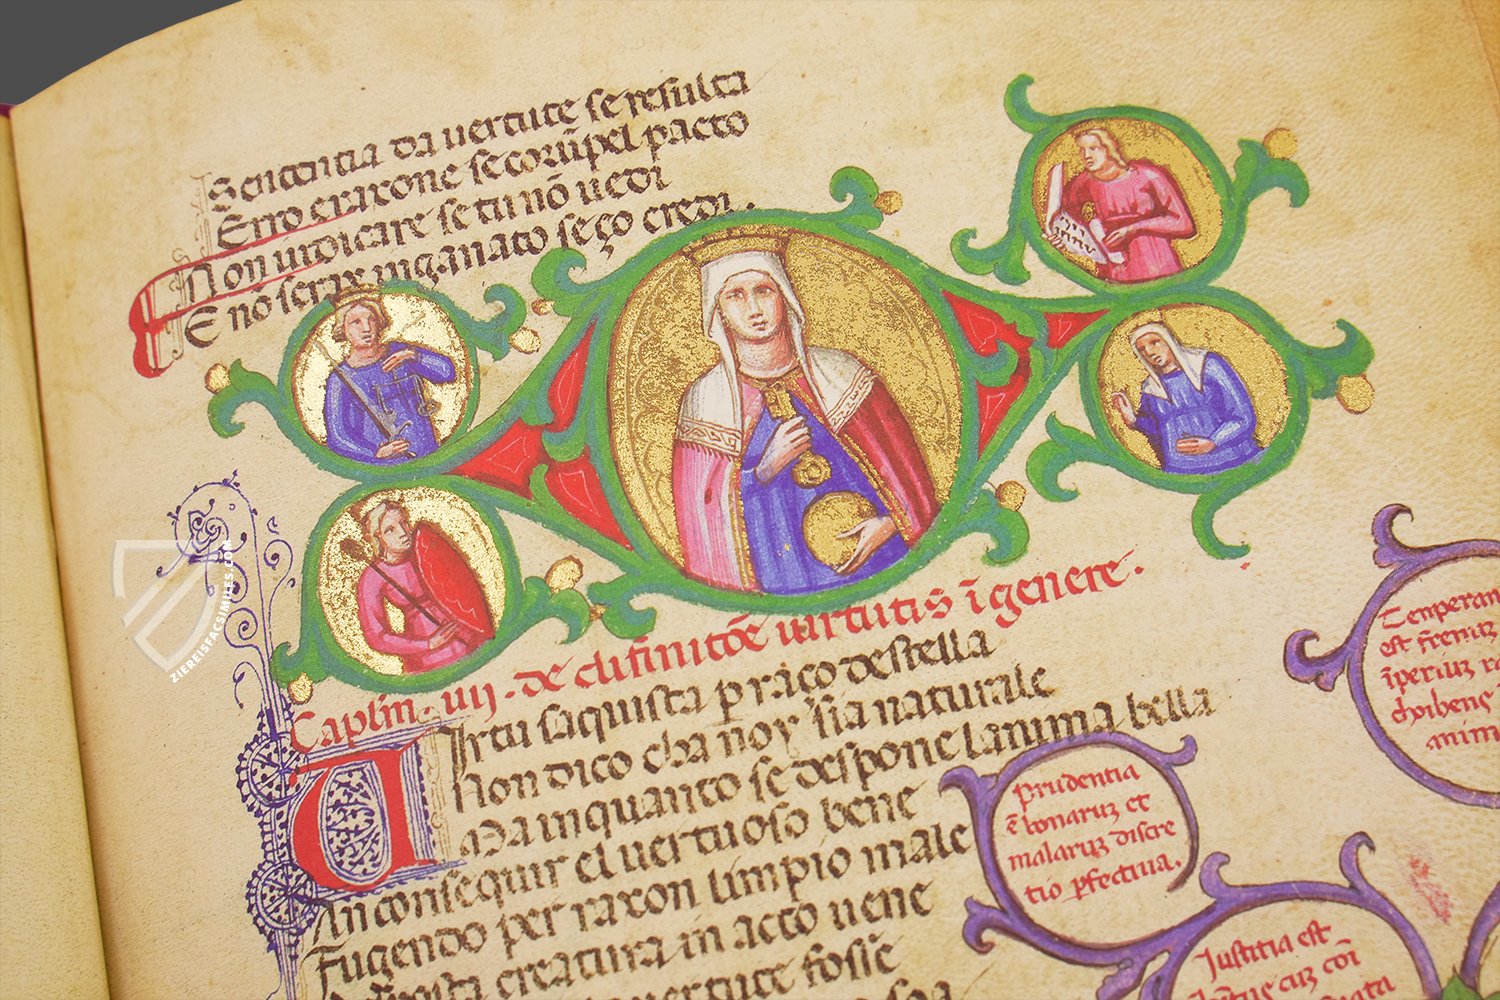 Sentencia da uertute se resulta
Erro e raxone se corūpel pacto
Non iudicare se tu nō uedi
E nō serax inganato se ço credi.
Caplm. iiij. de difinitōe uirtutis ī genere.
Uirtu saquista p raço de stella
Non dico cha noy sia naturale
Ma inquanto se despone lanima bella
In conseguir el uertuoso bene
Fugendo per raxon limpio male
creatura in acto uene
uertute fossē
Temperan
est
īperiuz
anim
Prudentia
ē bonaruz et
malaruz discre
tio pfectiua.
Justitia est
ZIEREISFACSIMILES.COM